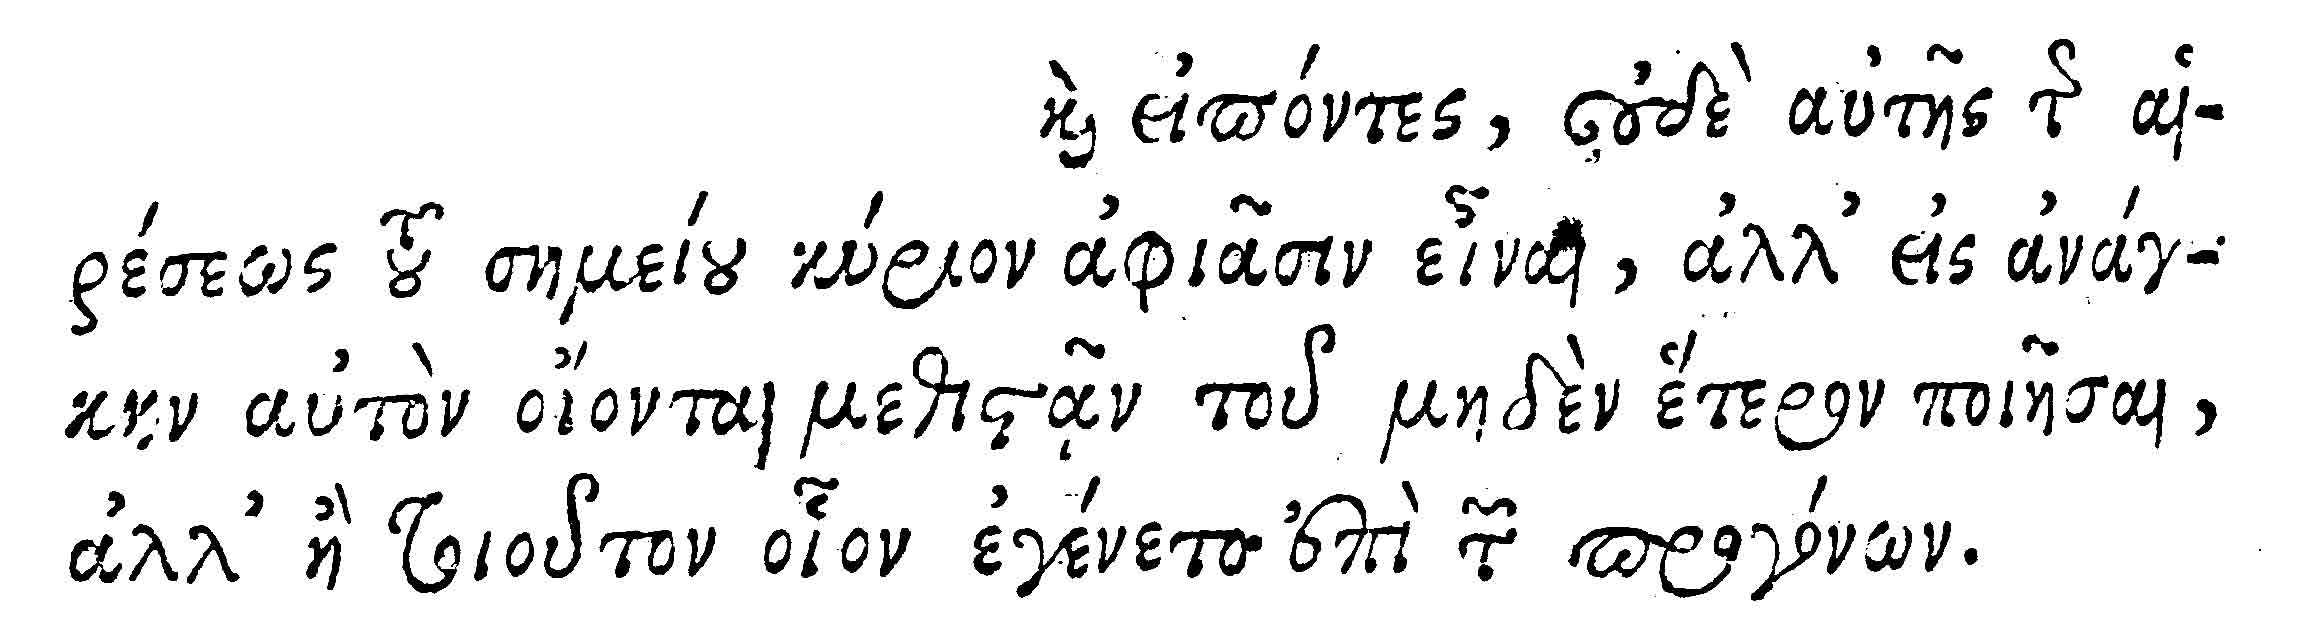 καὶ εἰπόντες, οὐδὲ αὐτῆς τῆς αἱ-
ρέσεως τοῦ σημείου κύριον ἀφιᾶσιν εἶναι, ἀλλ’ εἰς ἀνάγ-
κην αὐτὸν οἴονται μεθιστᾷν τοῦ μηδὲν ἕτερον ποιῆσαι,
ἀλλ’ ἢ τοιοῦτον οἷον ἐγένετο ἐπὶ τῶν προγόνων.